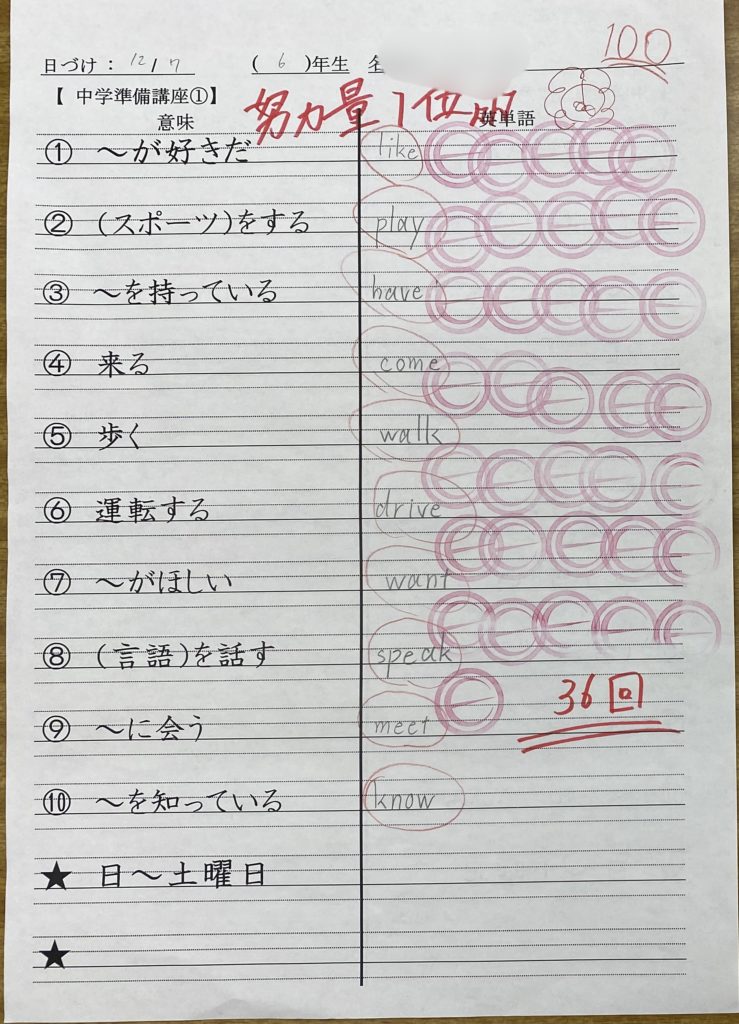 日づけ： 12/7 ( 6 )年生 名
100
【 中学準備講座①】
努力量1位!!
意味 英単語
① ～が好きだ like
② (スポーツ)をする play
③ ～を持っている have
④ 来る come
⑤ 歩く walk
⑥ 運転する drive
⑦ ～がほしい want
⑧ (言語)を話す speak
36回
⑨ ～に会う meet
⑩ ～を知っている know
★ 日～土曜日
★